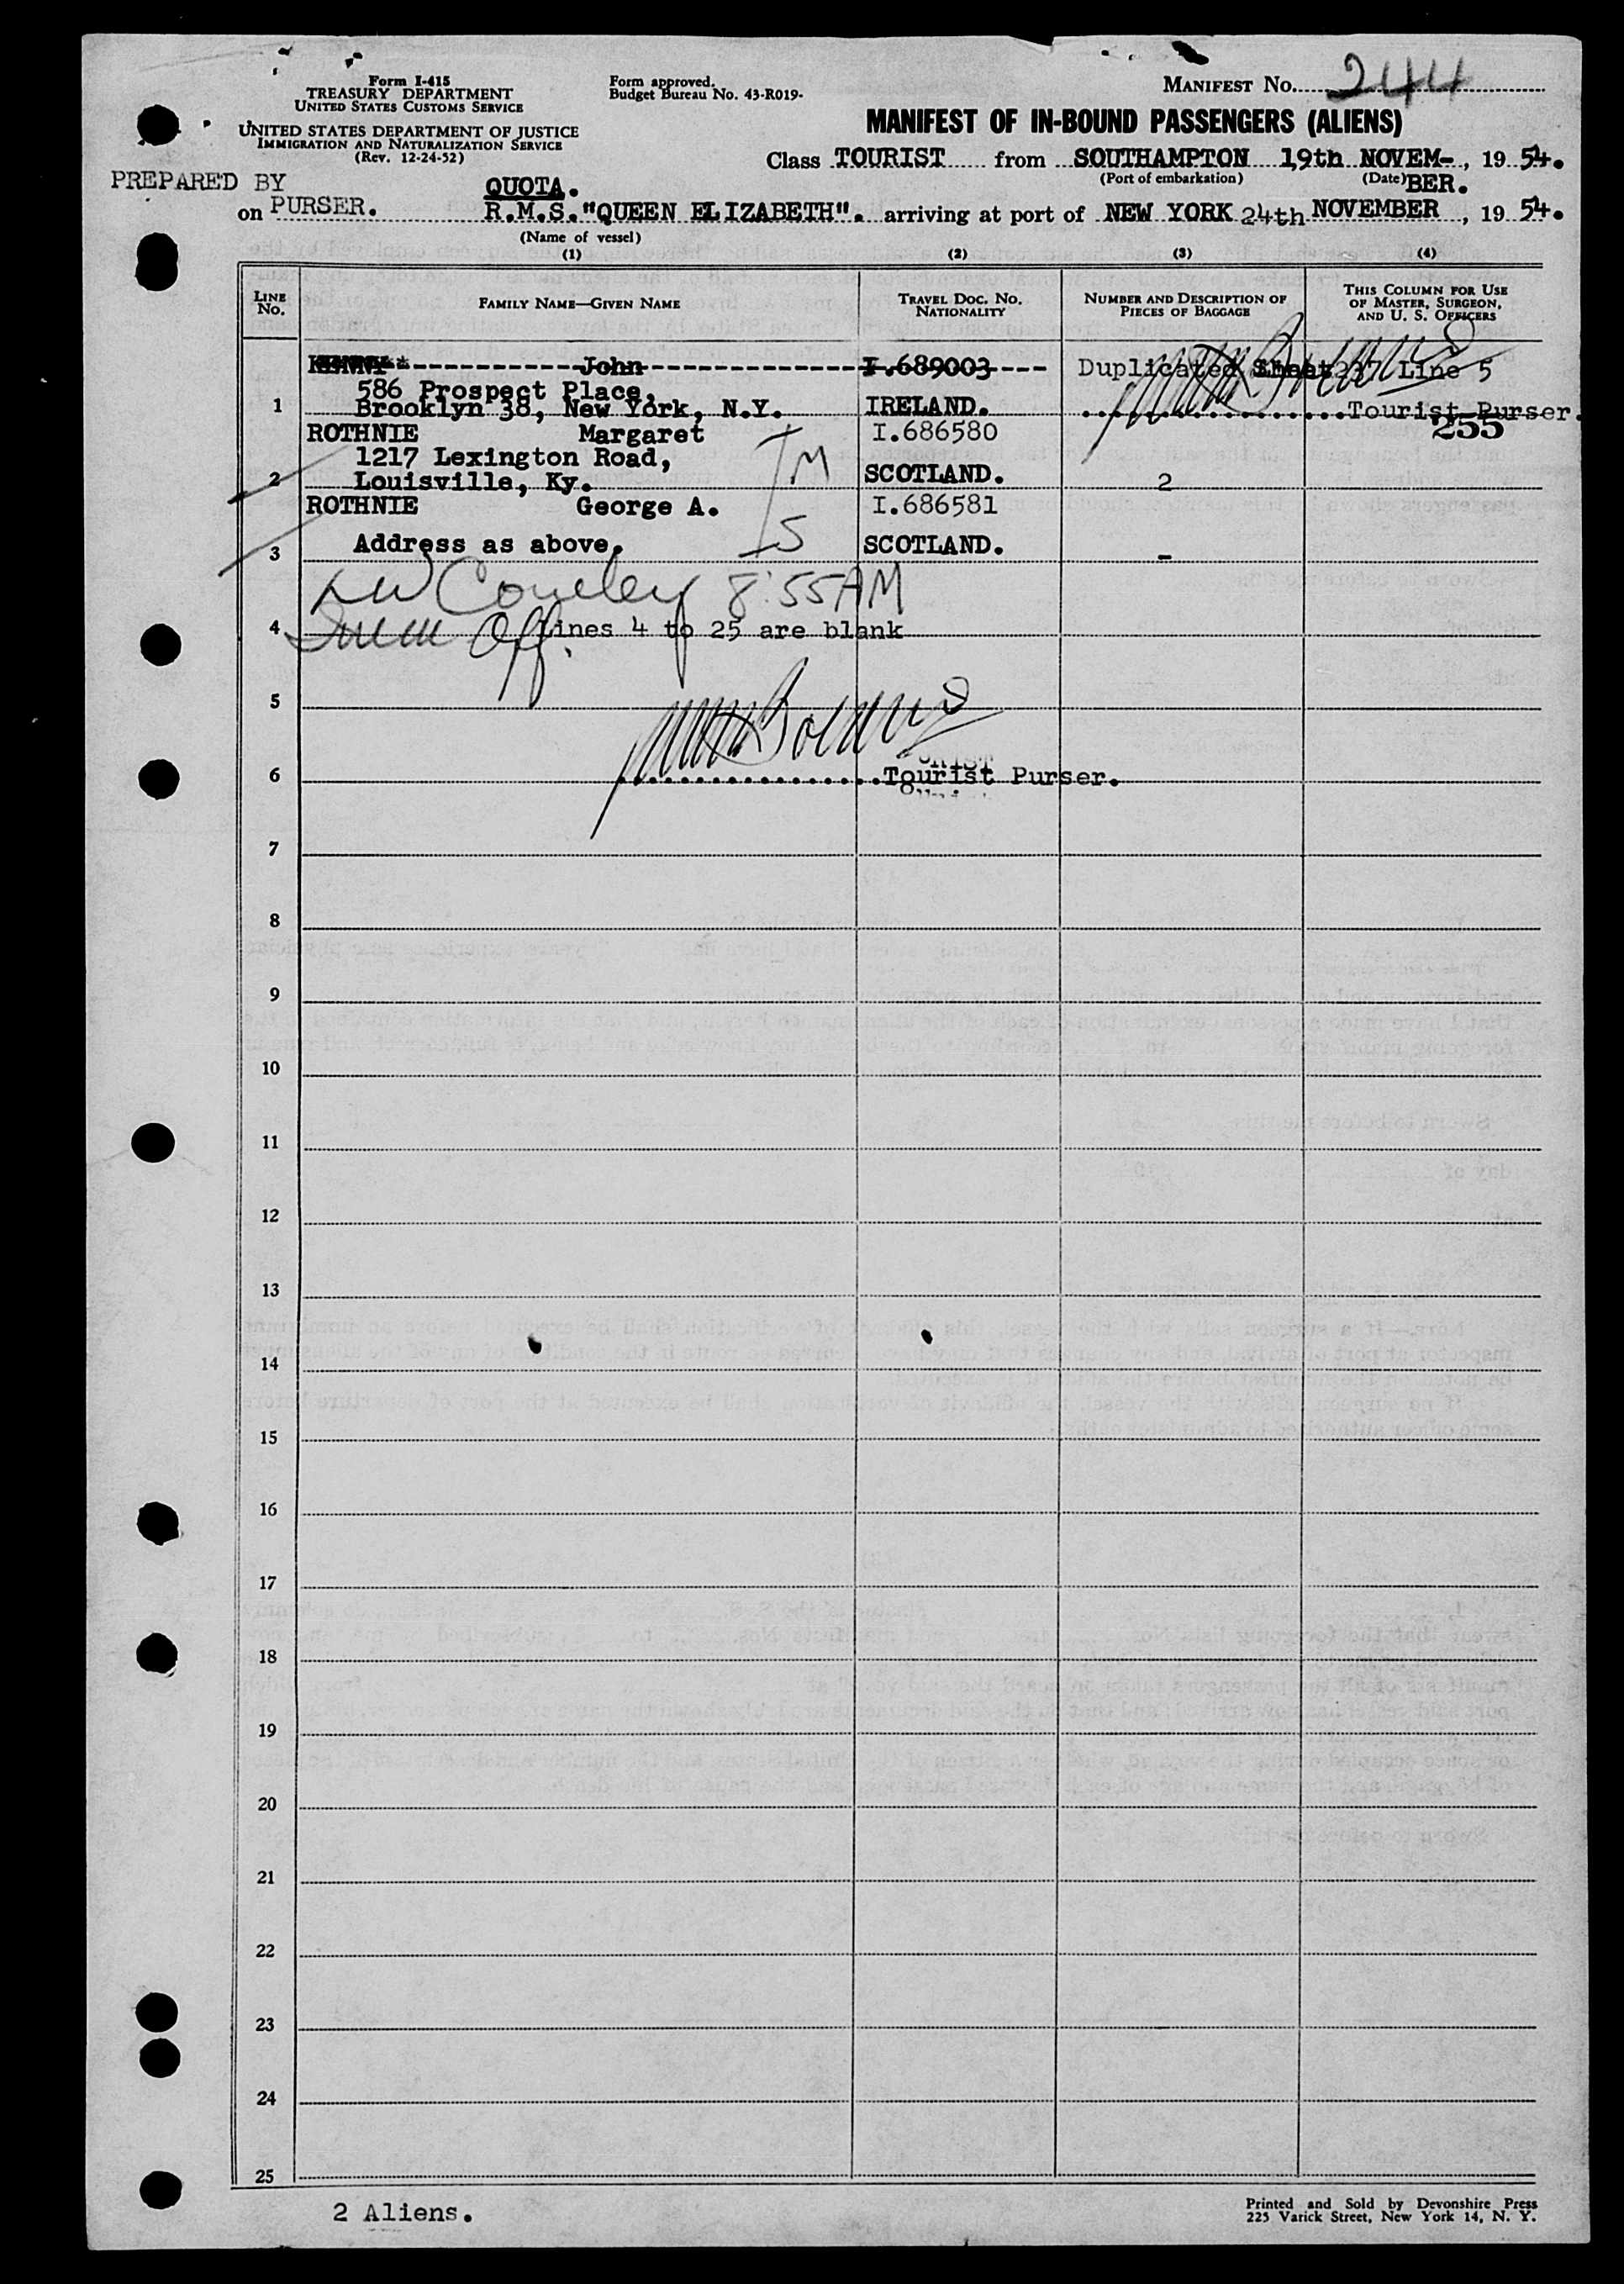 Form I-415
TREASURY DEPARTMENT
UNITED STATES CUSTOMS SERVICE
UNITED STATES DEPARTMENT OF JUSTICE
IMMIGRATION AND NATURALIZATION SERVICE
(Rev. 12-24-52)
Form approved.
Budget Bureau No. 43-R019-
MANIFEST No. 244
MANIFEST OF IN-BOUND PASSENGERS (ALIENS)
Class TOURIST from SOUTHAMPTON 19th NOVEM-, 19 54.
(Port of embarkation) (Date) BER.
PREPARED BY
QUOTA.
on PURSER. R.M.S. "QUEEN ELIZABETH". arriving at port of NEW YORK 24th NOVEMBER, 19 54.
(Name of vessel)
(1) (2) (3) (4)
LINE No. FAMILY NAME—GIVEN NAME TRAVEL DOC. No. NATIONALITY NUMBER AND DESCRIPTION OF PIECES OF BAGGAGE THIS COLUMN FOR USE OF MASTER, SURGEON, AND U. S. OFFICERS
John I.689003 Duplicated Sheet 237 Line 5
586 Prospect Place,
1 Brooklyn 38, New York, N.Y. IRELAND. Tourist Purser.
255
ROTHNIE Margaret I.686580
1217 Lexington Road,
2 Louisville, Ky. SCOTLAND. 2
ROTHNIE George A. I.686581
3 Address as above. SCOTLAND. -
8:55AM
4 Off. Lines 4 to 25 are blank
5
6 Tourist Purser.
7
8
9
10
11
12
13
14
15
16
17
18
19
20
21
22
23
24
25
2 Aliens.
Printed and Sold by Devonshire Press
225 Varick Street, New York 14, N. Y.